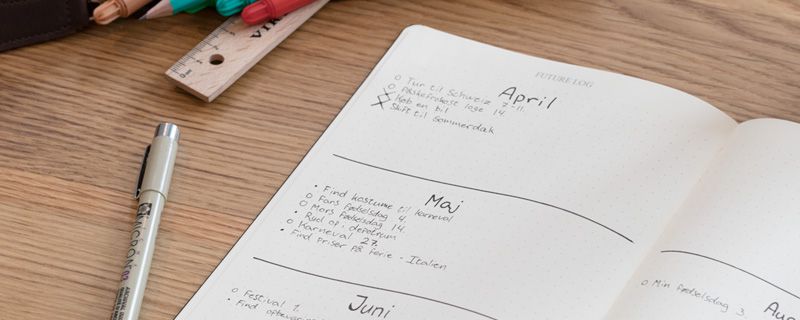 FUTURE LOG
April
o Tur til Schweiz 7-11.
o Påskefrokost loge 14.
x Køb en bil
x Skift til sommerdæk
Maj
• Find kostume til karneval
o Fars fødselsdag 4.
o Mors fødselsdag 14.
• Ryd op i depotrum
o Karneval 27.
• Find priser på ferie - Italien
Juni
o Festival 1.
• Find
o Min fødselsdag 3.
MICRON